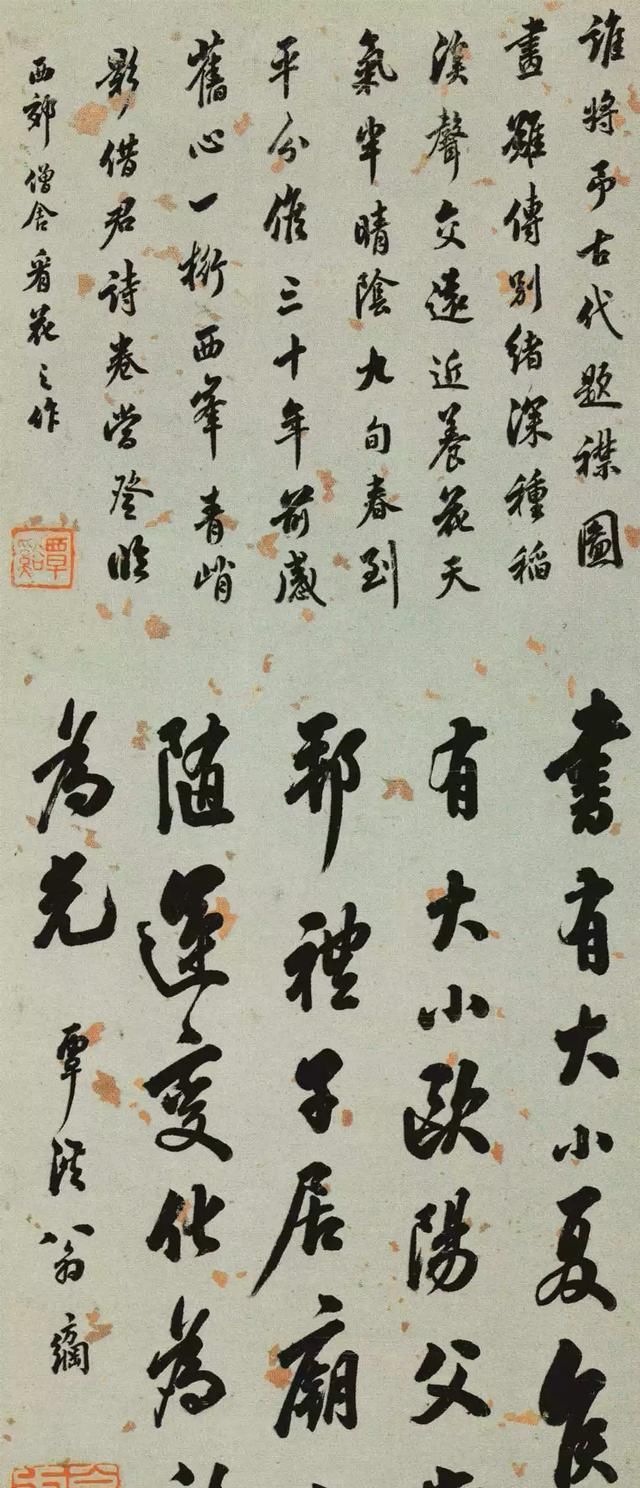 誰將予古代題襟圖
畫雖傳別緒深種稻
溪聲交遠近養花天
氣半晴陰九旬春到
平分候三十年前感
舊心一桁西峯青峭
影借君詩卷當登臨
西郊僧舍看花之作
覃谿
書有大小夏侯
有大小歐陽父
禮子居廟
随運變化為
為光
覃溪翁方綱